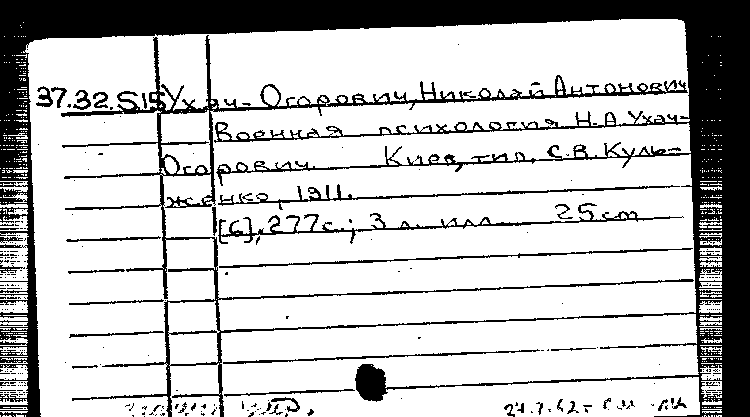 37.32.S15 Ухач-Огорович, Николай Антонович
Военная психология Н.А. Ухач-
Огорович. Киев, тип. С.В. Куль-
женко, 1911.
[6], 277 с.; 3 л. илл. 25 cm